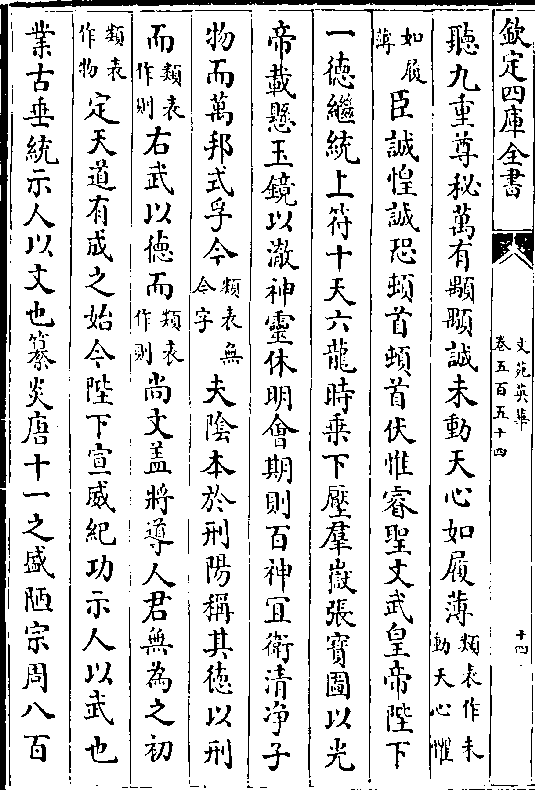 欽定四庫全書
文苑英華
卷五百五十四
十四
聽九重尊秘萬有顒顒誠未動天心如履薄類表作未動天心惟
如履薄臣誠惶誠恐頓首頓首伏惟睿聖文武皇帝陛下
一徳繼統上符十天六龍時乗下壓羣嶽張寳圖以光
帝載懸玉鏡以澈神靈休明會期則百神冝衛清浄子
物而萬邦式孚今類表無今字夫陰本於刑陽稱其徳以刑
而類表作則右武以徳而類表作則尚文盖將導人君無為之初
類表作物定天道有成之始今陛下宣威紀功示人以武也
業古垂統示人以文也纂炎唐十一之盛陋宗周八百